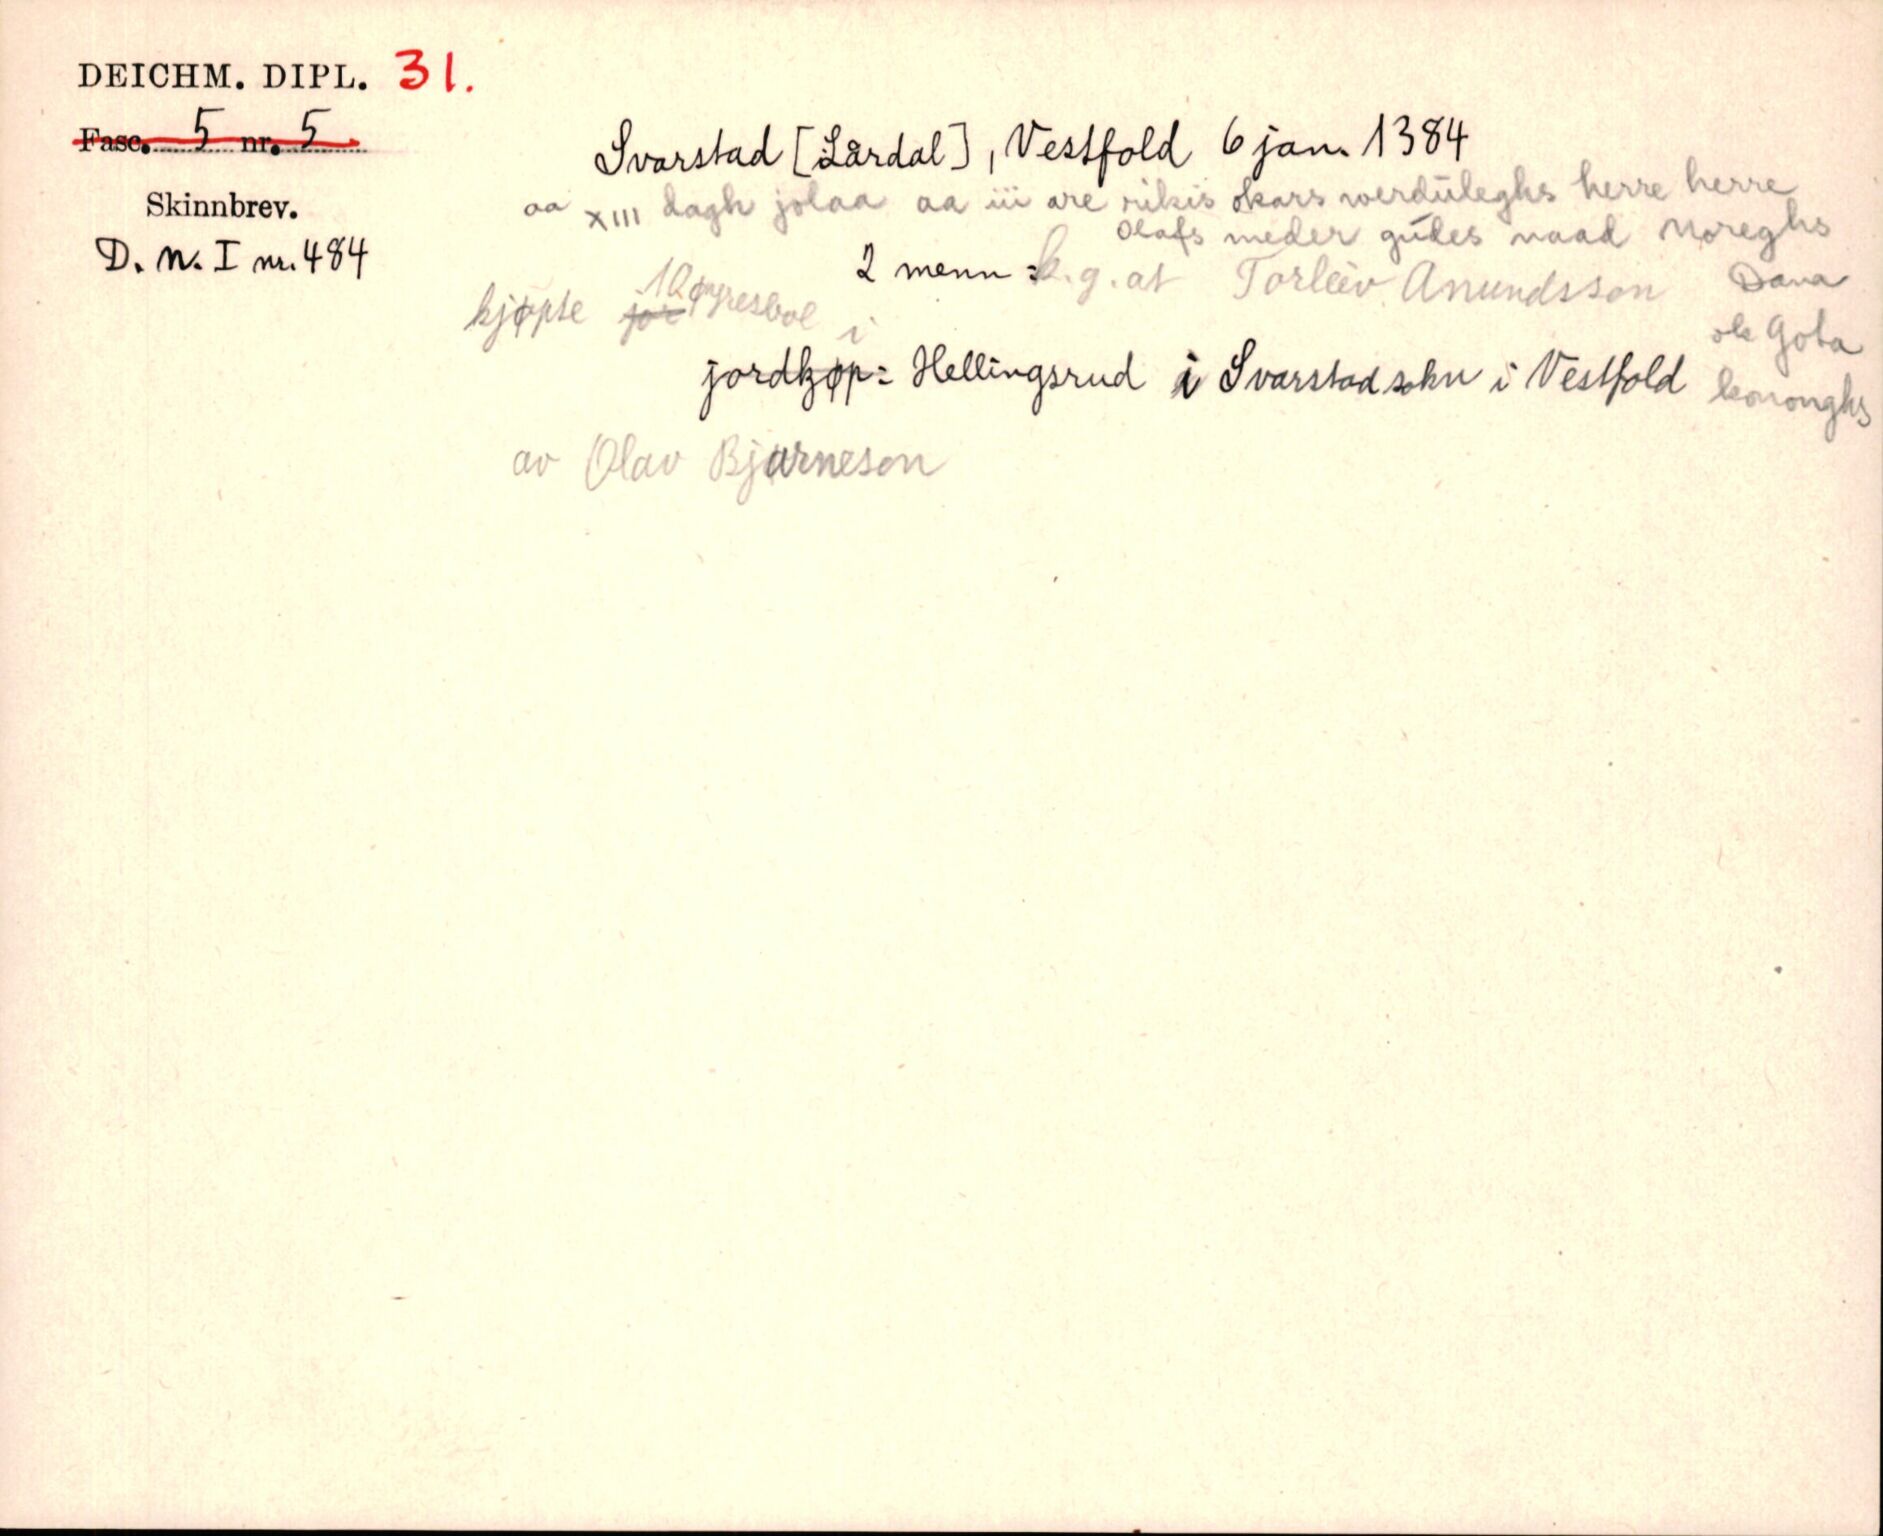 DEICHM. DIPL. 31.
Fasc. 5 nr. 5
Skinnbrev.
D. N. I nr. 484
Svarstad [Lardal], Vestfold 6 jan. 1384
aa XIII dagh jolaa aa iii are rikis okars werduleghs herre herre
Olafs meder gudes naad Noreghs
Dana
ok Gota
kononghs
2 menn : k.g. at Torleiv Anundsson
kjøpte jor 10 øyresbol i
jordkjøp: Hellingsrud i Svarstad sokn i Vestfold
av Olav Bjarneson